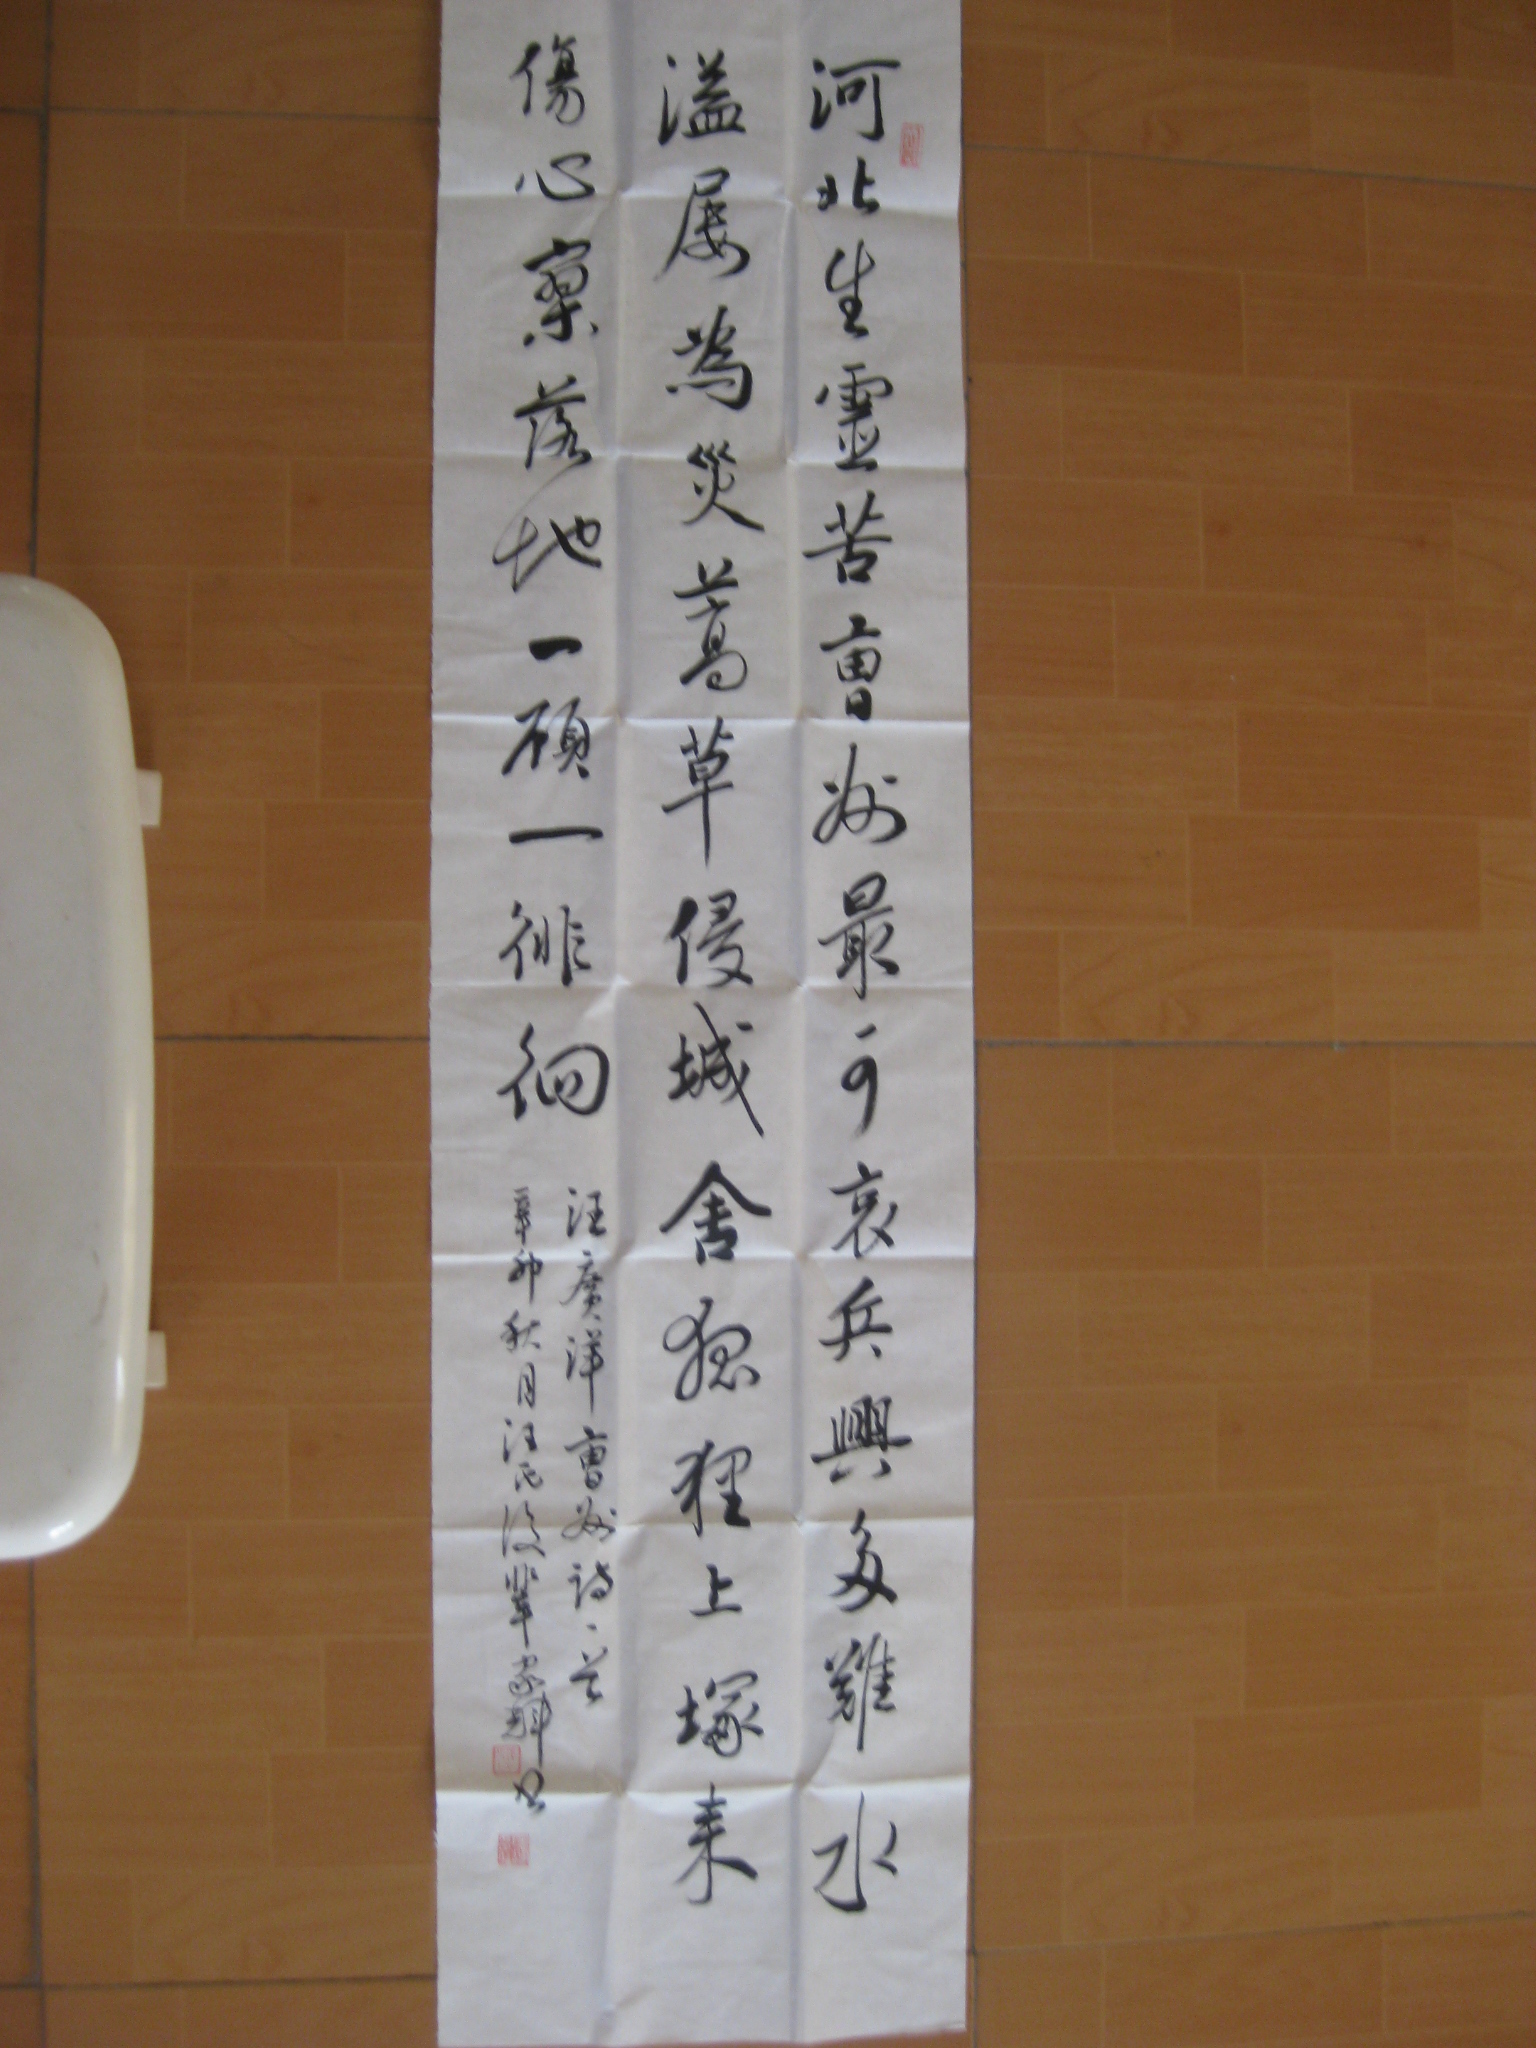 河北生靈苦曹州最可哀兵興多難水
溢屢為災蒿草侵城舍狐狸上塚来
傷心寥落地一顧一徘徊
汪廣洋曹州詩一首
辛卯秋月汪氏後輩家輝书